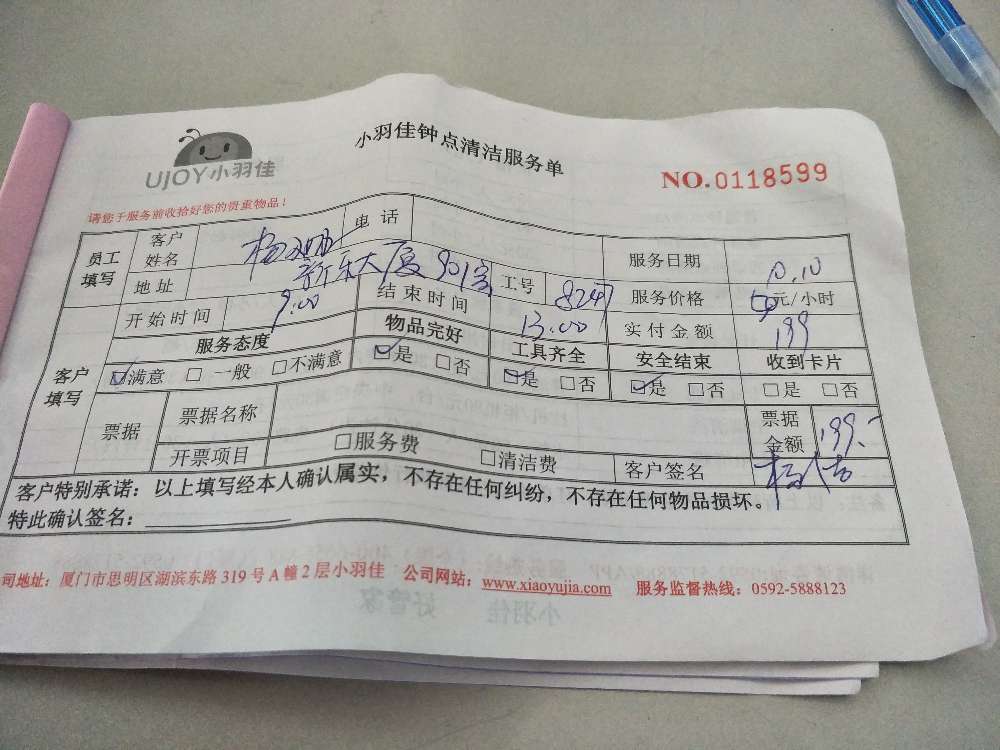 UJOY小羽佳
小羽佳钟点清洁服务单
NO.0118599
请您于服务前收拾好您的贵重物品！
员工填写 客户姓名 杨 电话 服务日期 10.10
地址 大厦901室 工号 8247 服务价格 元/小时
开始时间 9.00 结束时间 13.00 实付金额 199
客户填写 服务态度 物品完好 工具齐全 安全结束 收到卡片
☑满意 □一般 □不满意 ☑是 □否 ☑是 □否 ☑是 □否 □是 □否
票据 票据名称 票据金额 199.-
开票项目 □服务费 □清洁费 客户签名 杨
客户特别承诺：以上填写经本人确认属实，不存在任何纠纷，不存在任何物品损坏。
特此确认签名：
司地址：厦门市思明区湖滨东路319号A幢2层小羽佳 公司网站：www.xiaoyujia.com 服务监督热线：0592-5888123